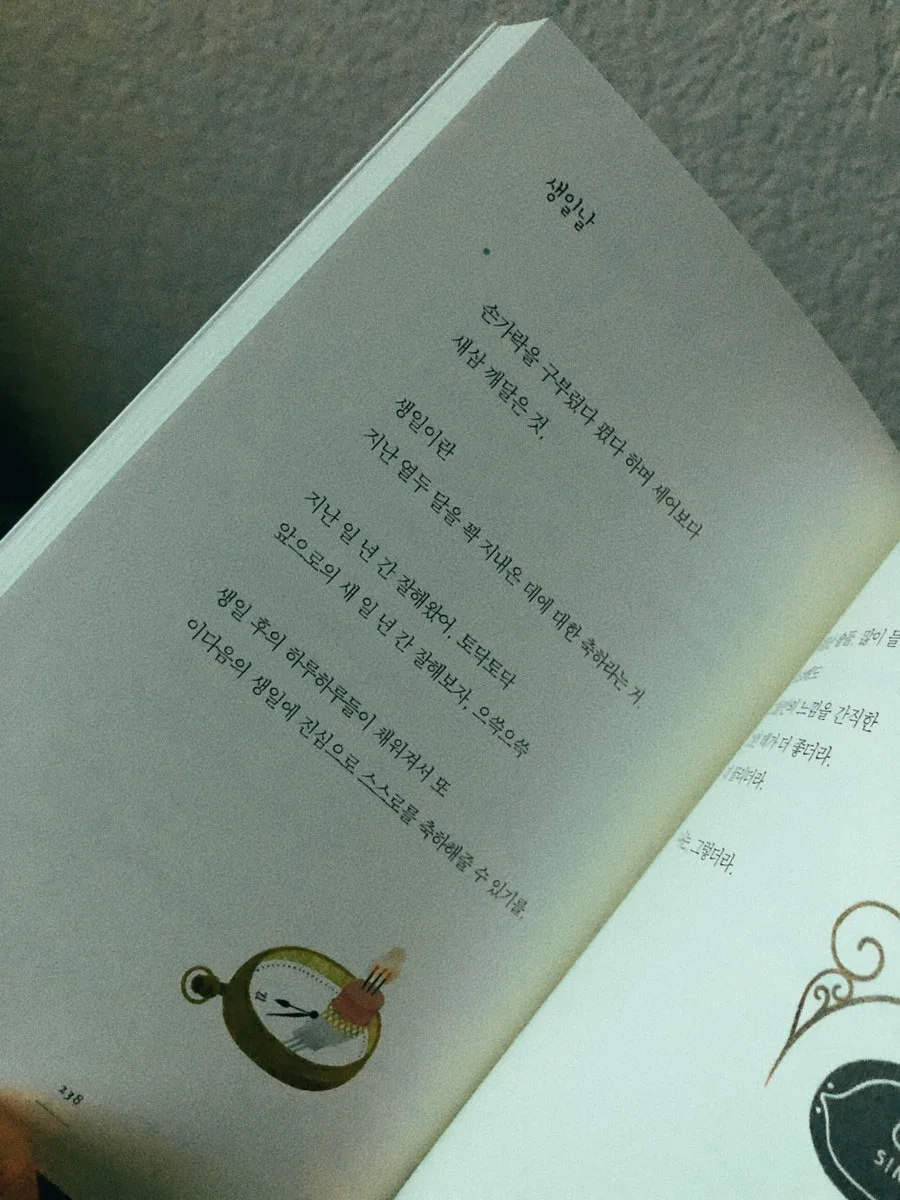 생일날
손가락을 구부렸다 폈다 하며 세어보다
새삼 깨달은 것,
생일이란
지난 열두 달을 꽉 지내온 데에 대한 축하라는 거.
지난 일 년 간 잘해왔어, 토닥토닥
앞으로의 새 일 년 간 잘해보자, 으쓱으쓱
생일 후의 하루하루들이 채워져서 또
이다음의 생일에 진심으로 스스로를 축하해줄 수 있기를.
12
238
많이
느낌을 간직한
때가 더 좋더라.
그렇더라.